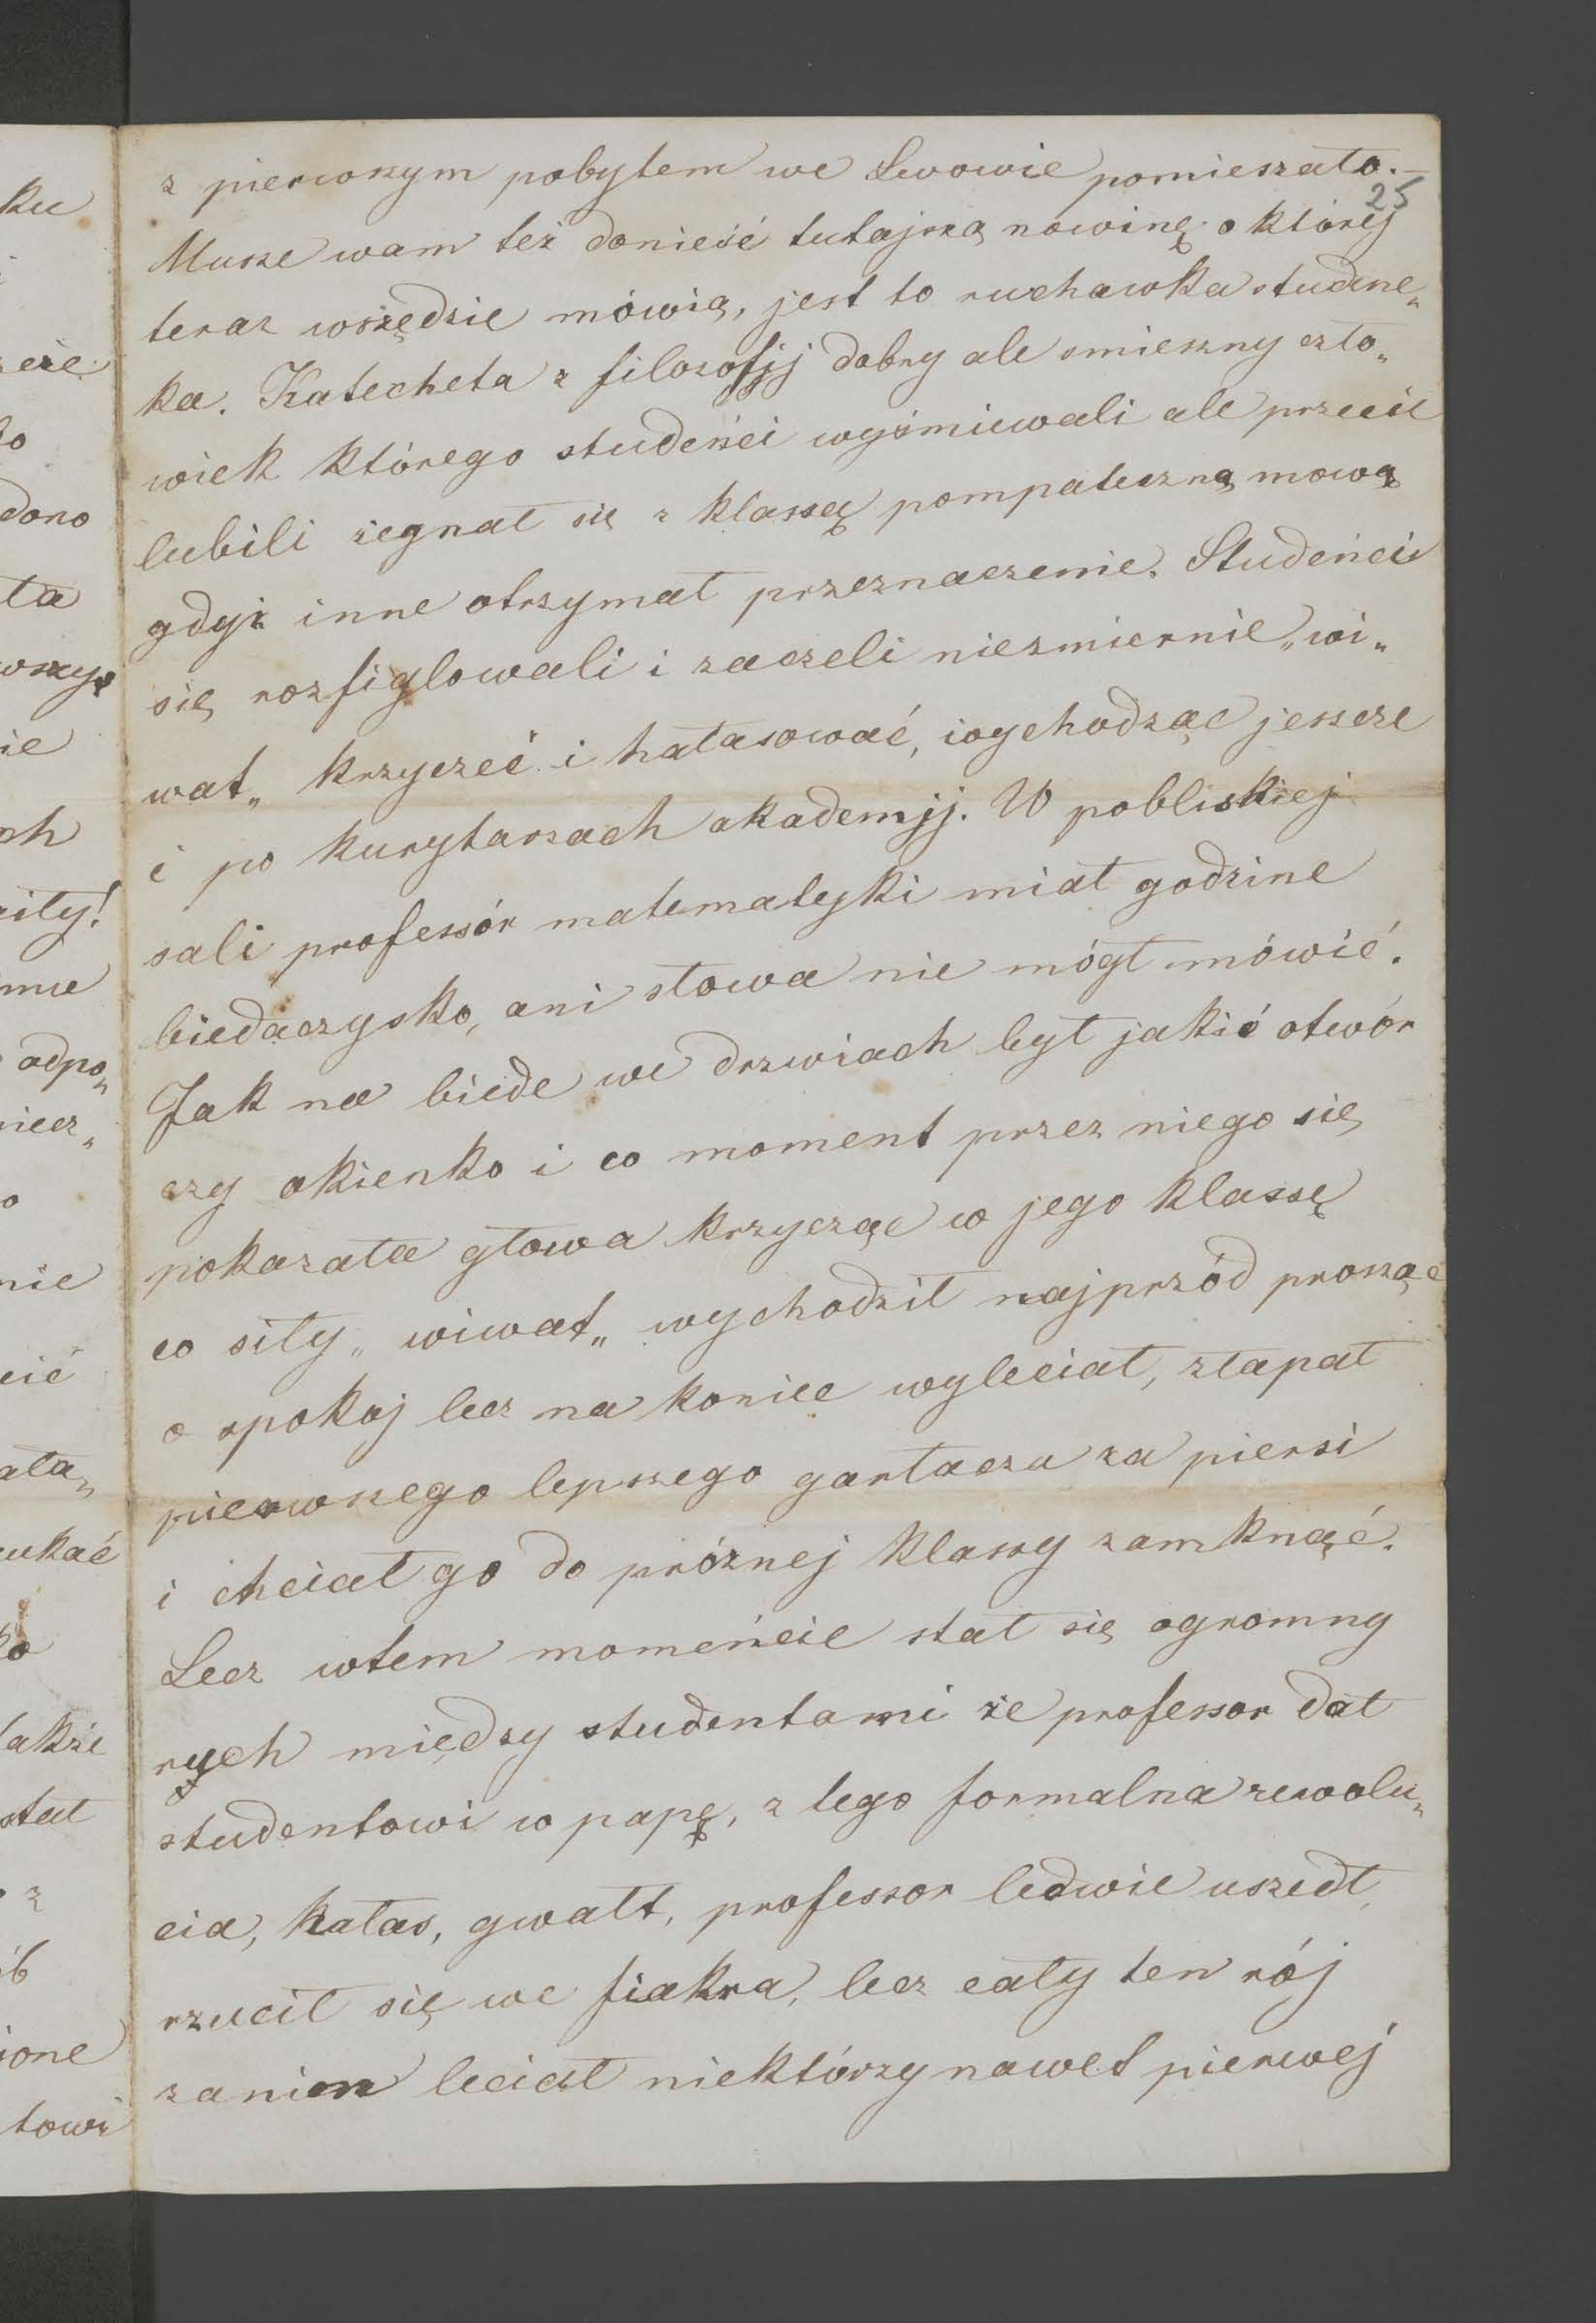 z pierwszym pobytem we Lwowie pomieszało.—
25
Musze wam też donieść tutajszą nowinę o której
teraz wszędzie mówią, jest to ruchawka studenc„
ka. Katecheta z filozofjj dobry ale smieszny czło„
wiek którego studeńci wyśmiewali ale przecie
lubili żegnał się z klassą pompateczną mową
gdyż inne otrzymał przeznaczenie. Studeńci
się rozfiglowali i zaczeli niezmiernie „wi„
wat„ krzyczeć i hałasować, wychodząc jeszcze
i po kurytarzach akademjj. W pobliskiej
sali professór matematyki miał godzine
biedaczysko, ani słowa nie mógł mówić.
Jak na biede we drzwiach był jakiś otwór
czy okienko i co moment przez niego się
pokazała głowa krzycząc w jego klassę
co siły „wiwat„ wychodził najprzód prosząc
o spokoj lecz na koniec wyleciał, złapał
pierwszego lepszego gartacza za piersi
i chciał go do próznej klassy zamknąć.
Lecz wtem momeńcie stał się ogromny
rych między studentami że professor dał
studentowi w papę, z tego formalna rewolu„
cia, hałas, gwałt, professor ledwie uszedł
rzucił się we fiakra, lecz cały ten rój
zanim leciał niektórzy nawet pierwej